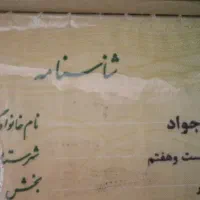 شناسنامه
جواد نام خانوادگی
بیست و هفتم شهرستان
بخش